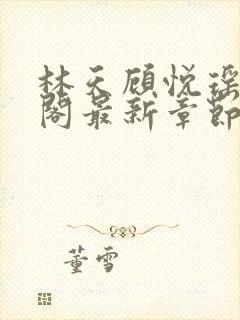 林天顾悦瑶
阁最新章節
董雪